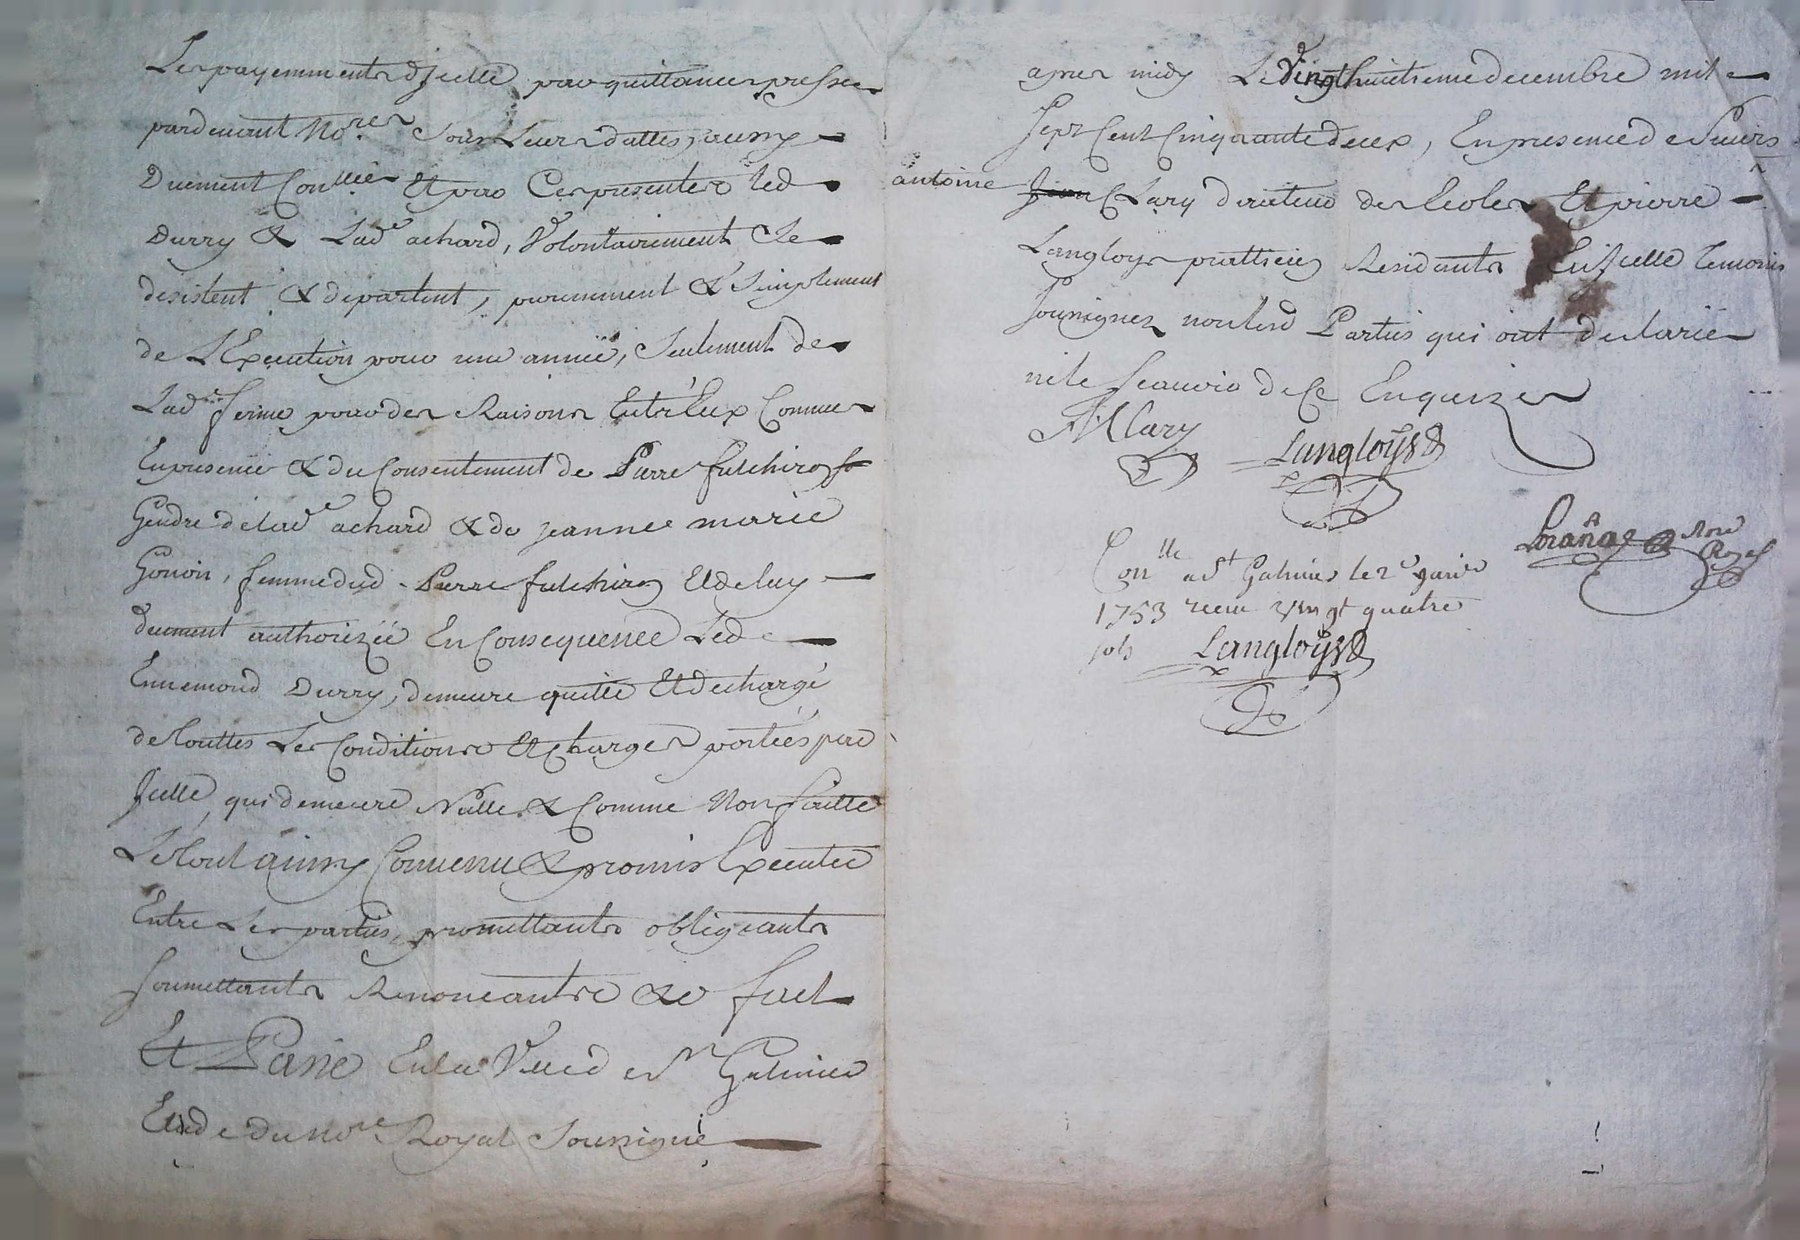 Les payemments d'Jcelle par quittances passées
pardevant No.res Sous Leurs dattes, aussy
Duement Con.llées Et par Ces presentes led
Durry & Lad.e achard, Volontairement Se
desistent & departent, puremment & Simplement
de L'Execution pour une année, Seulement de
Lad.e ferme pour des Raisons Entr'Eux Connues
En presence & du Consentement de Pierre fulchiron
Gendre de lad.e achard & de jeanne marie
Gonon, femme dud. Pierre fulchiron Et de luy
duement authorizée En Consequence Led
Ennemond Durry, demeure quitte Et dechargé
de touttes Les Conditions Et Charges portées par
Jcelle, qui demeure Nulle & Comme Non faitte
Le tout ainsy Convenu & promis Executer
Entre Les parties, promettants obligeants
Soumettants Renonceants &c fait
Et Passé En la Ville de St Galmier
Etude du No.re Royal Soussigné
apres midy Le Vingthuitieme decembre mil
Sept Cent Cinquante deux, En presence de Sieurs
antoine Jean Clary directeur des Ecoles Et pierre
Langloys pratticien Residants En Jcelle temoins
Soussignez non lesd Parties qui ont declaré
ne le Scavoir de Ce Enquizes
A Clary
Langloys
Con.lle a St Galmier le 2e janvier
1753 receu vingt quatre
sols Langloys
No.re Royal